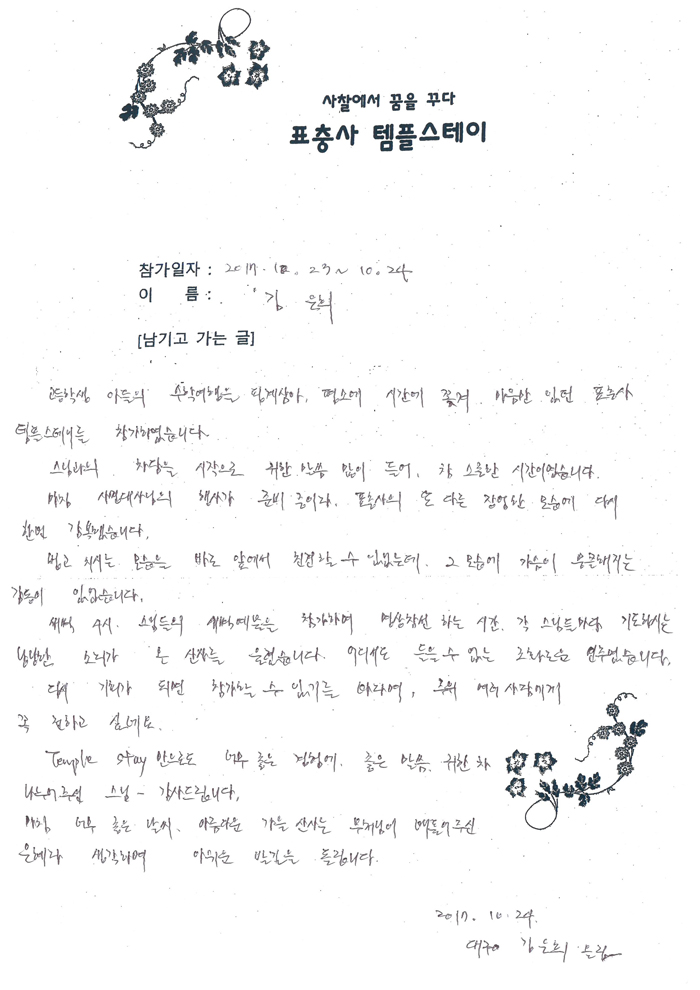 사찰에서 꿈을 꾸다
표충사 템플스테이
참가일자 : 2017. 10. 23 ~ 10. 24
이 름 : 김 은희
[남기고 가는 글]
고등학생 아들의 수학여행을 핑계삼아, 평소에 시간에 쫓겨 마음만 있던 표충사
템플스테이를 참가하였습니다.
스님과의 차담을 시작으로 귀한 말씀 많이 들어, 참 소중한 시간이었습니다.
마침 사명대사님의 행사가 준비 중이라, 표충사의 또 다른 장엄한 모습에 다시
한번 감복했습니다.
법고 치시는 모습을 바로 앞에서 친견할 수 있었는데, 그 모습에 가슴이 뭉클해지는
감동이 있었습니다.
새벽 4시. 스님들의 새벽예불을 참가하며 명상참선 하는 시간, 각 스님들마다 기도하시는
낭랑한 소리가 온 산사를 울렸습니다. 어디서도 들을 수 없는 조화로운 연주였습니다.
다시 기회가 되면 참가할 수 있기를 바라며, 주위 여러 사람에게
꼭 전하고 싶네요.
Temple stay 만으로도 너무 좋은 경험에, 좋은 말씀, 귀한 차
나누어주신 스님 ~ 감사드립니다.
마침 너무 좋은 날씨, 아름다운 가을 산사는 부처님이 베풀어주신
은혜라 생각하며 아쉬운 발길을 돌립니다.
2017. 10. 24.
대구 김은희 드림